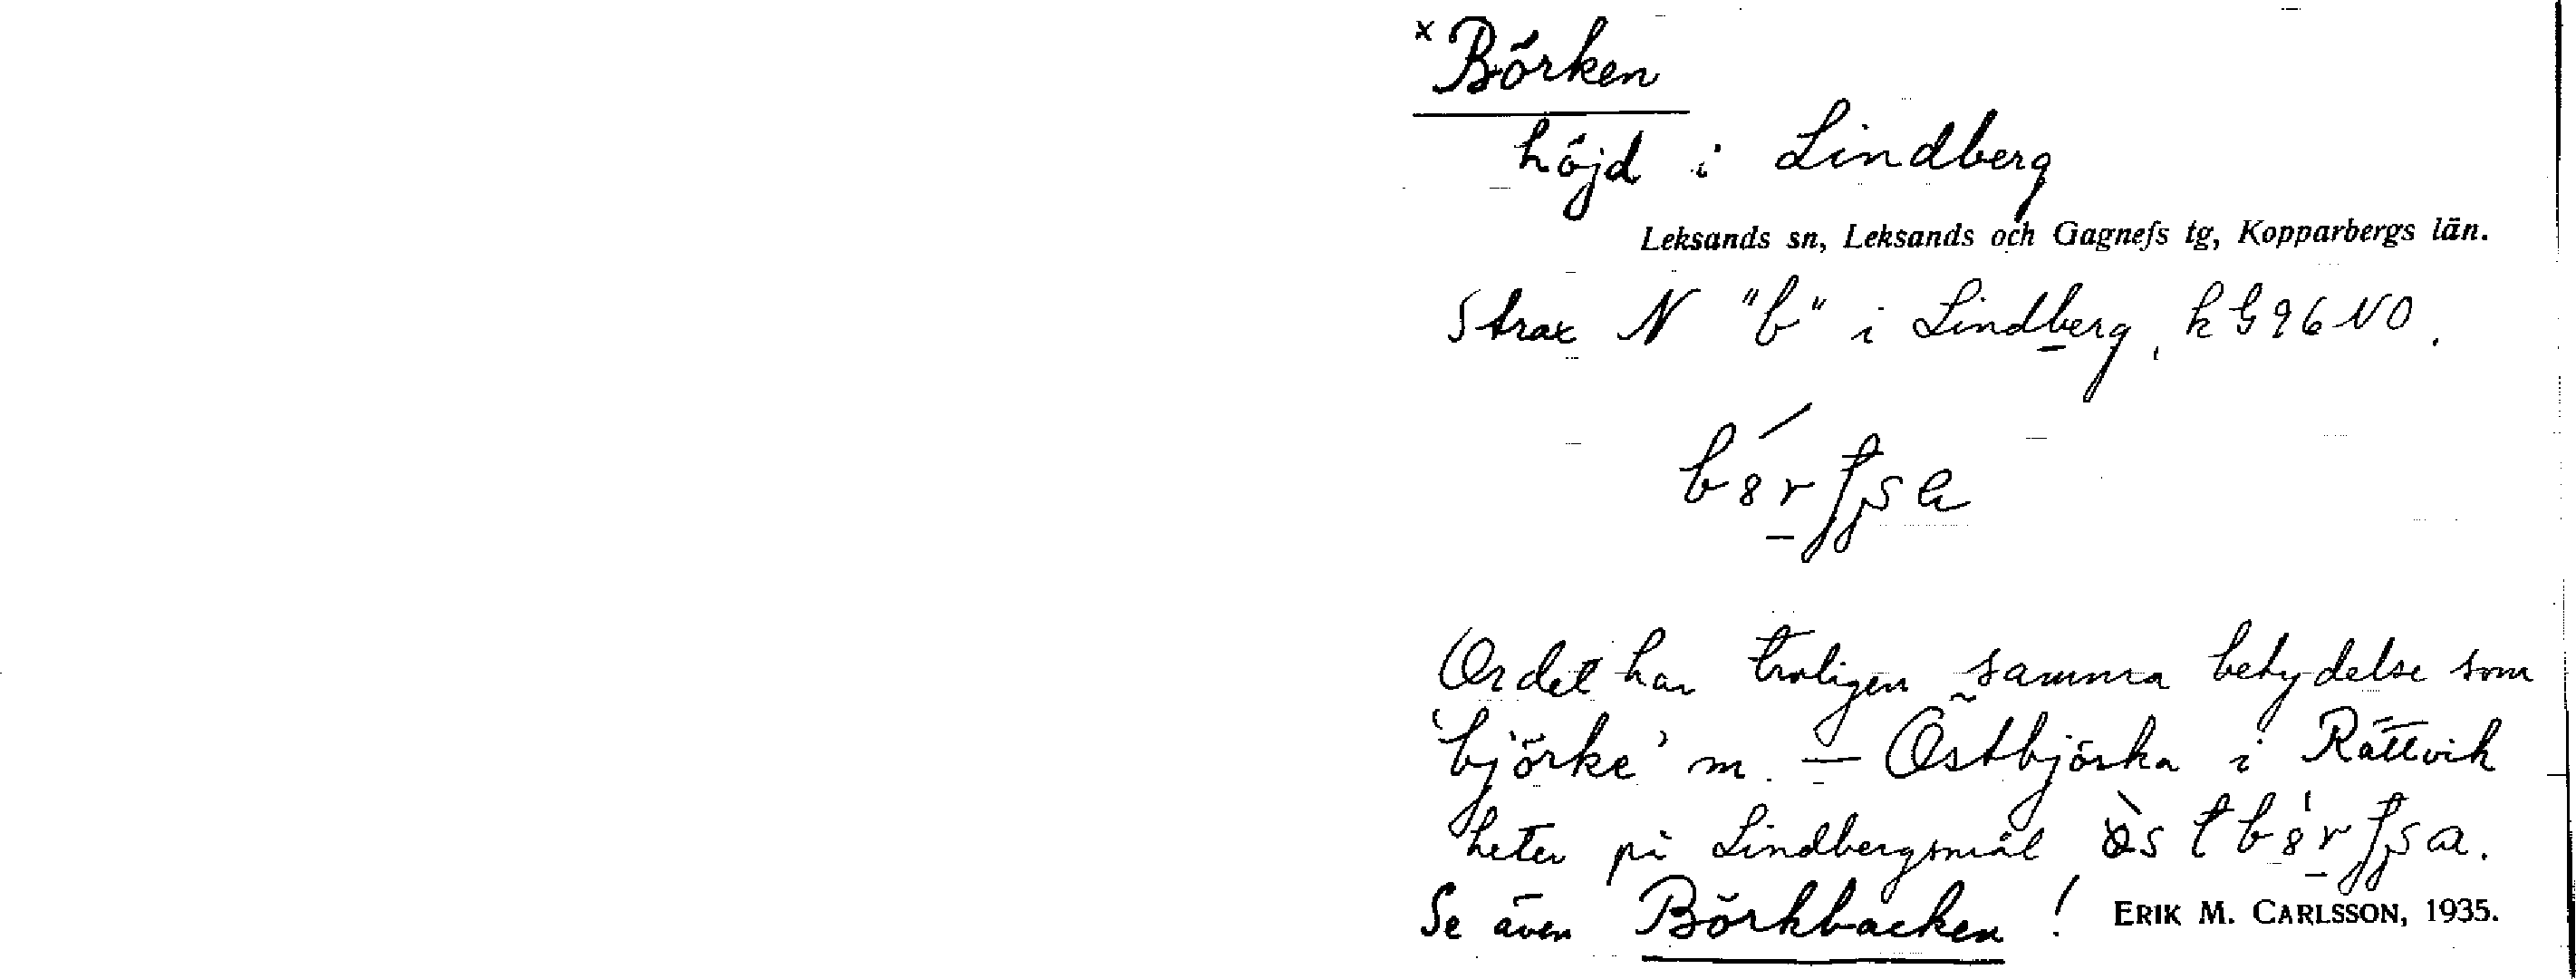 x Börken
höjd i Lindberg
Leksands sn, Leksands och Gagnefs tg, Kopparbergs län.
Strax N "b" i Lindberg, k G 96 NO.
Ordet har troligen samma betydelse som
'björke' m. — Östbjörka i Rättvik
heter på Lindbergsmål
Se även Börkbacken! ERIK M. CARLSSON, 1935.